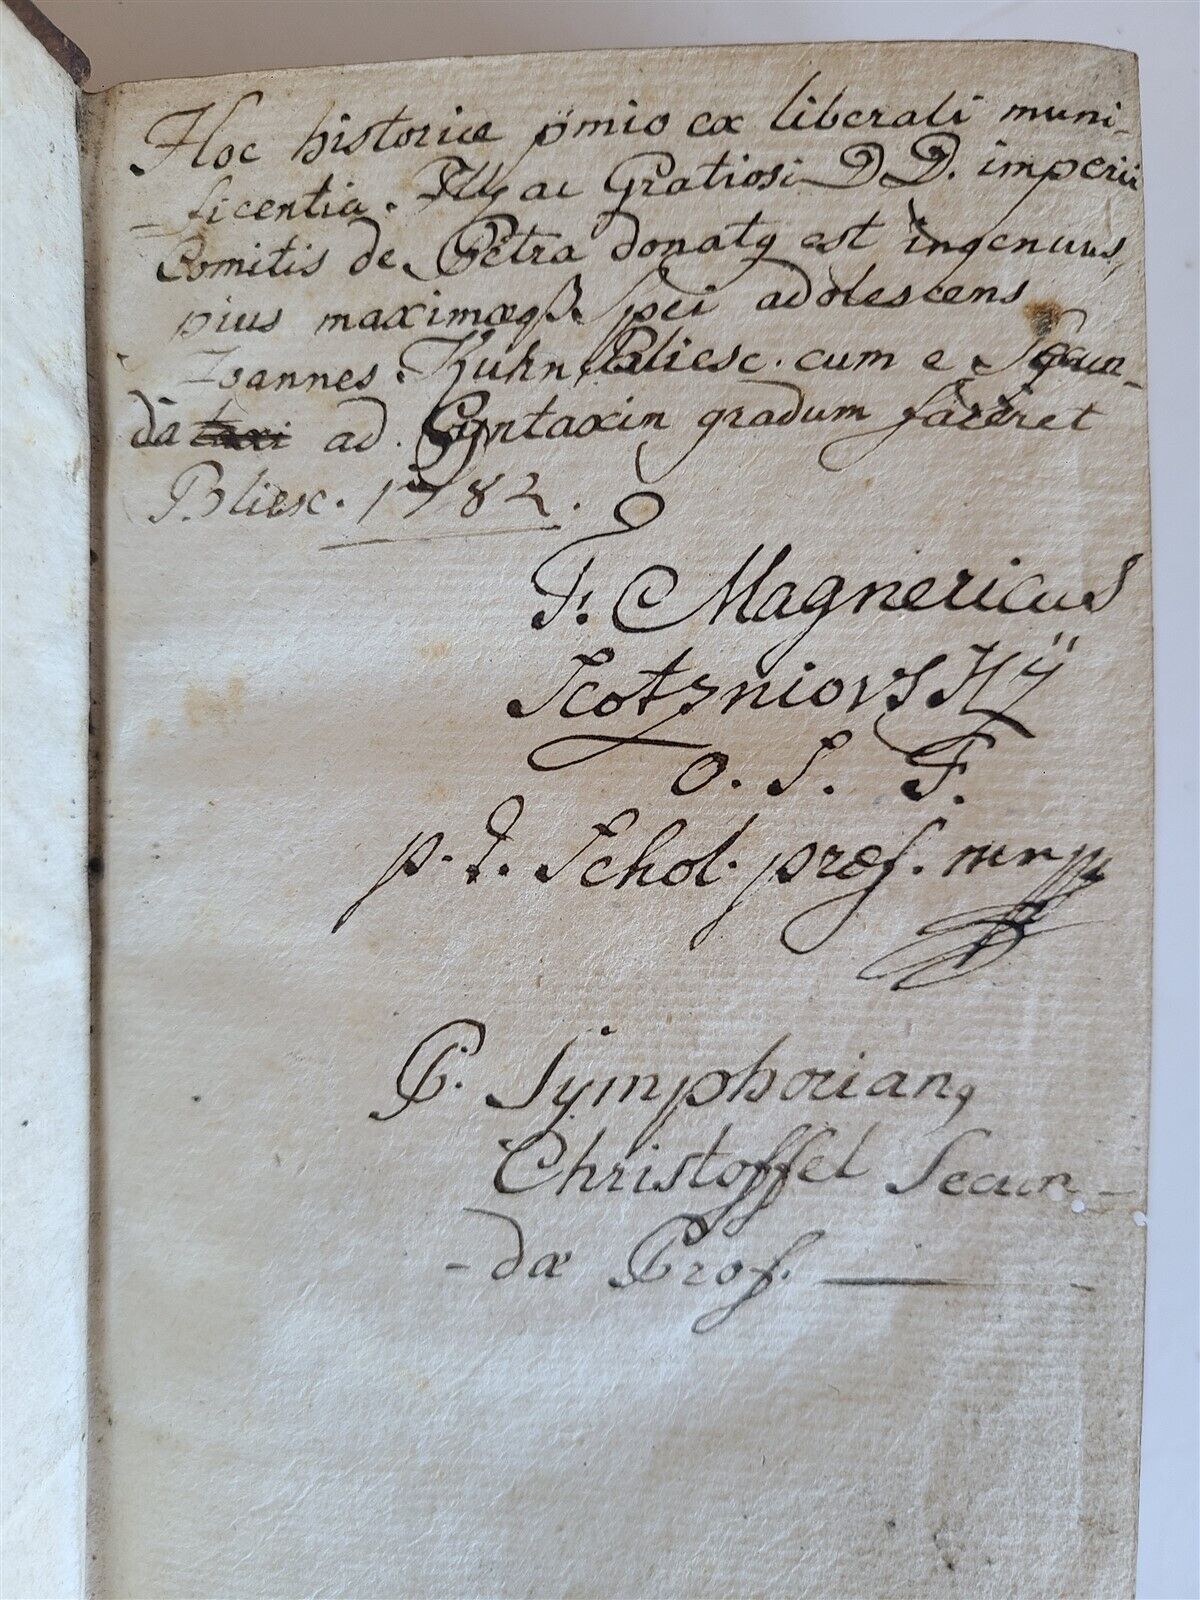 Hoc historiæ p̈mio ex liberali muni-
-ficentia. Illꝯ ac Gratiosi D D. imperii
Comitis de Petra donatꝯ est ingenuus,
pius maximæqꝫ spei adolescens
Ioannes. Kuhn Bliesc. cum e Secun-
da taxi ad. Syntaxin gradum faceret
Bliesc. 1782.
F. Magnericus
Scotzniovskÿ
O. S. F.
p. t. Schol. præf. mrp
P. Symphorianꝯ
Christoffel Secun-
-dæ Prof.